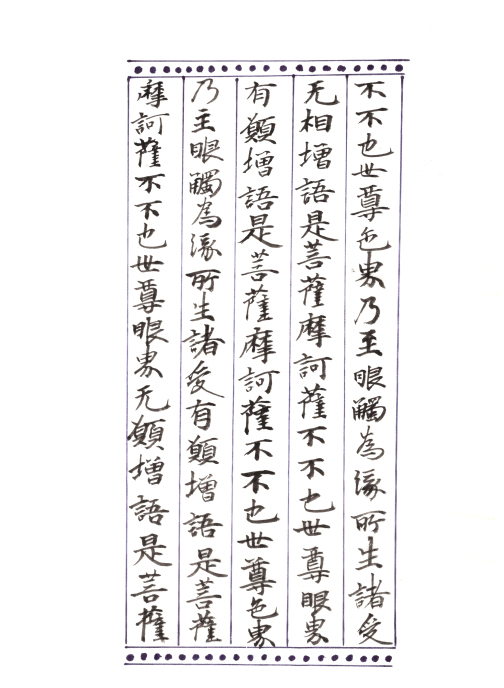 不不也世尊色界乃至眼觸為緣所生諸受
无相增語是菩薩摩訶薩不不也世尊眼界
有願增語是菩薩摩訶薩不不也世尊色界
乃至眼觸為緣所生諸受有願增語是菩薩
摩訶薩不不也世尊眼界无願增語是菩薩